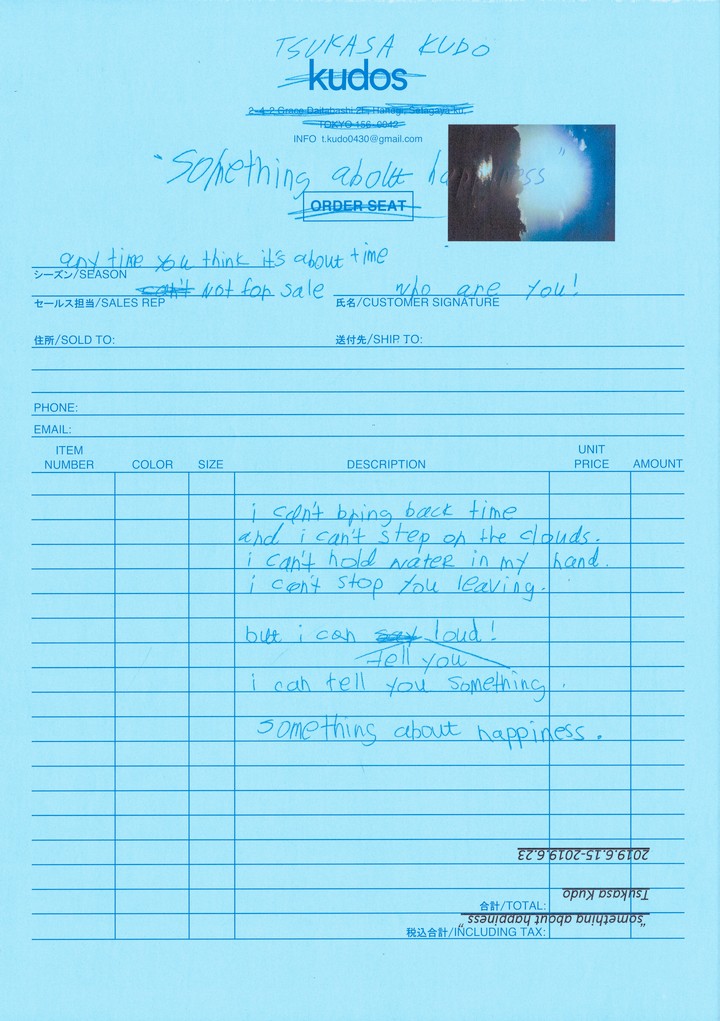 TSUKASA KUDO
kudos
2-4-2 Grace Daitabashi 2F, Hanegi, Setagaya-ku,
TOKYO 156-0042
INFO t.kudo0430@gmail.com
"something about happiness"
ORDER SEAT
any time you think it's about time
シーズン/SEASON
can't Not for sale who are you!
セールス担当/SALES REP 氏名/CUSTOMER SIGNATURE
住所/SOLD TO: 送付先/SHIP TO:
PHONE:
EMAIL:
ITEM NUMBER COLOR SIZE DESCRIPTION UNIT PRICE AMOUNT
i can't bring back time
and i can't step on the clouds.
i can't hold water in my hand.
i can't stop you leaving.
but i can say loud!
tell you
i can tell you something.
something about happiness.
2019.6.15-2019.6.23
Tsukasa Kudo
合計/TOTAL:
"something about happiness"
税込合計/INCLUDING TAX: